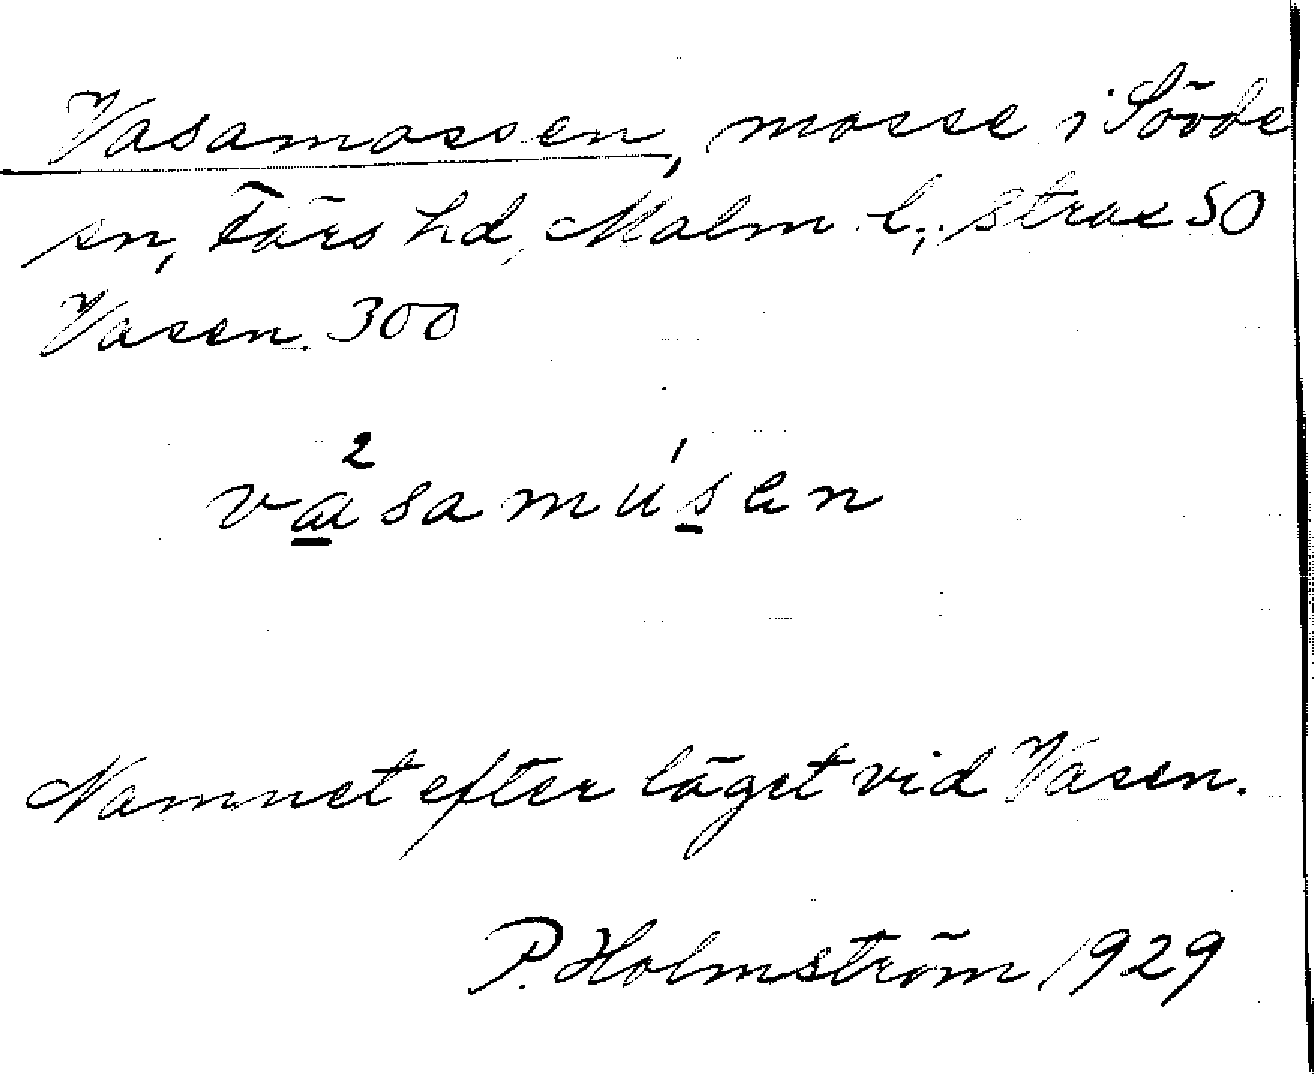 Vasamossen, mosse i Sövde
sn, Färs hd, Malm. l., strax SO
Vasen. 300
2
våsamúsen
Namnet efter läget vid Vasen.
P. Holmström 1929